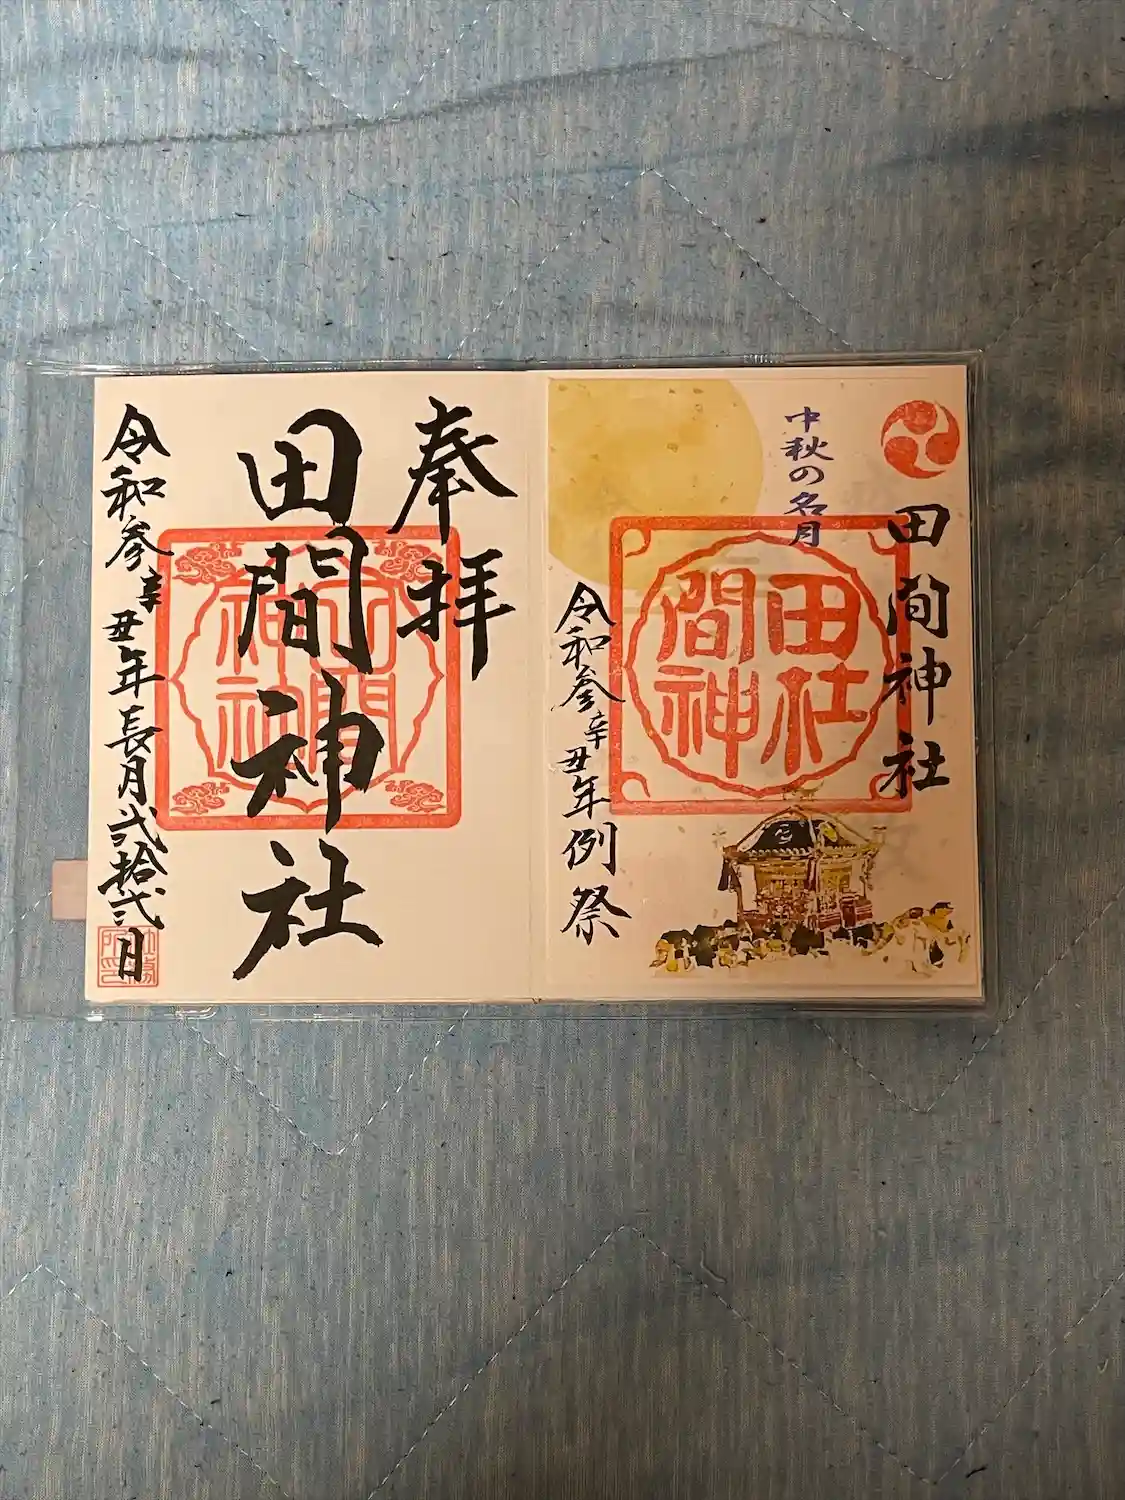 田間神社
中秋の名月
田社
間神
令和参辛丑年例祭
奉拝
田間神社
田間
神社
令和参辛丑年長月弐拾弐日
社務
所印